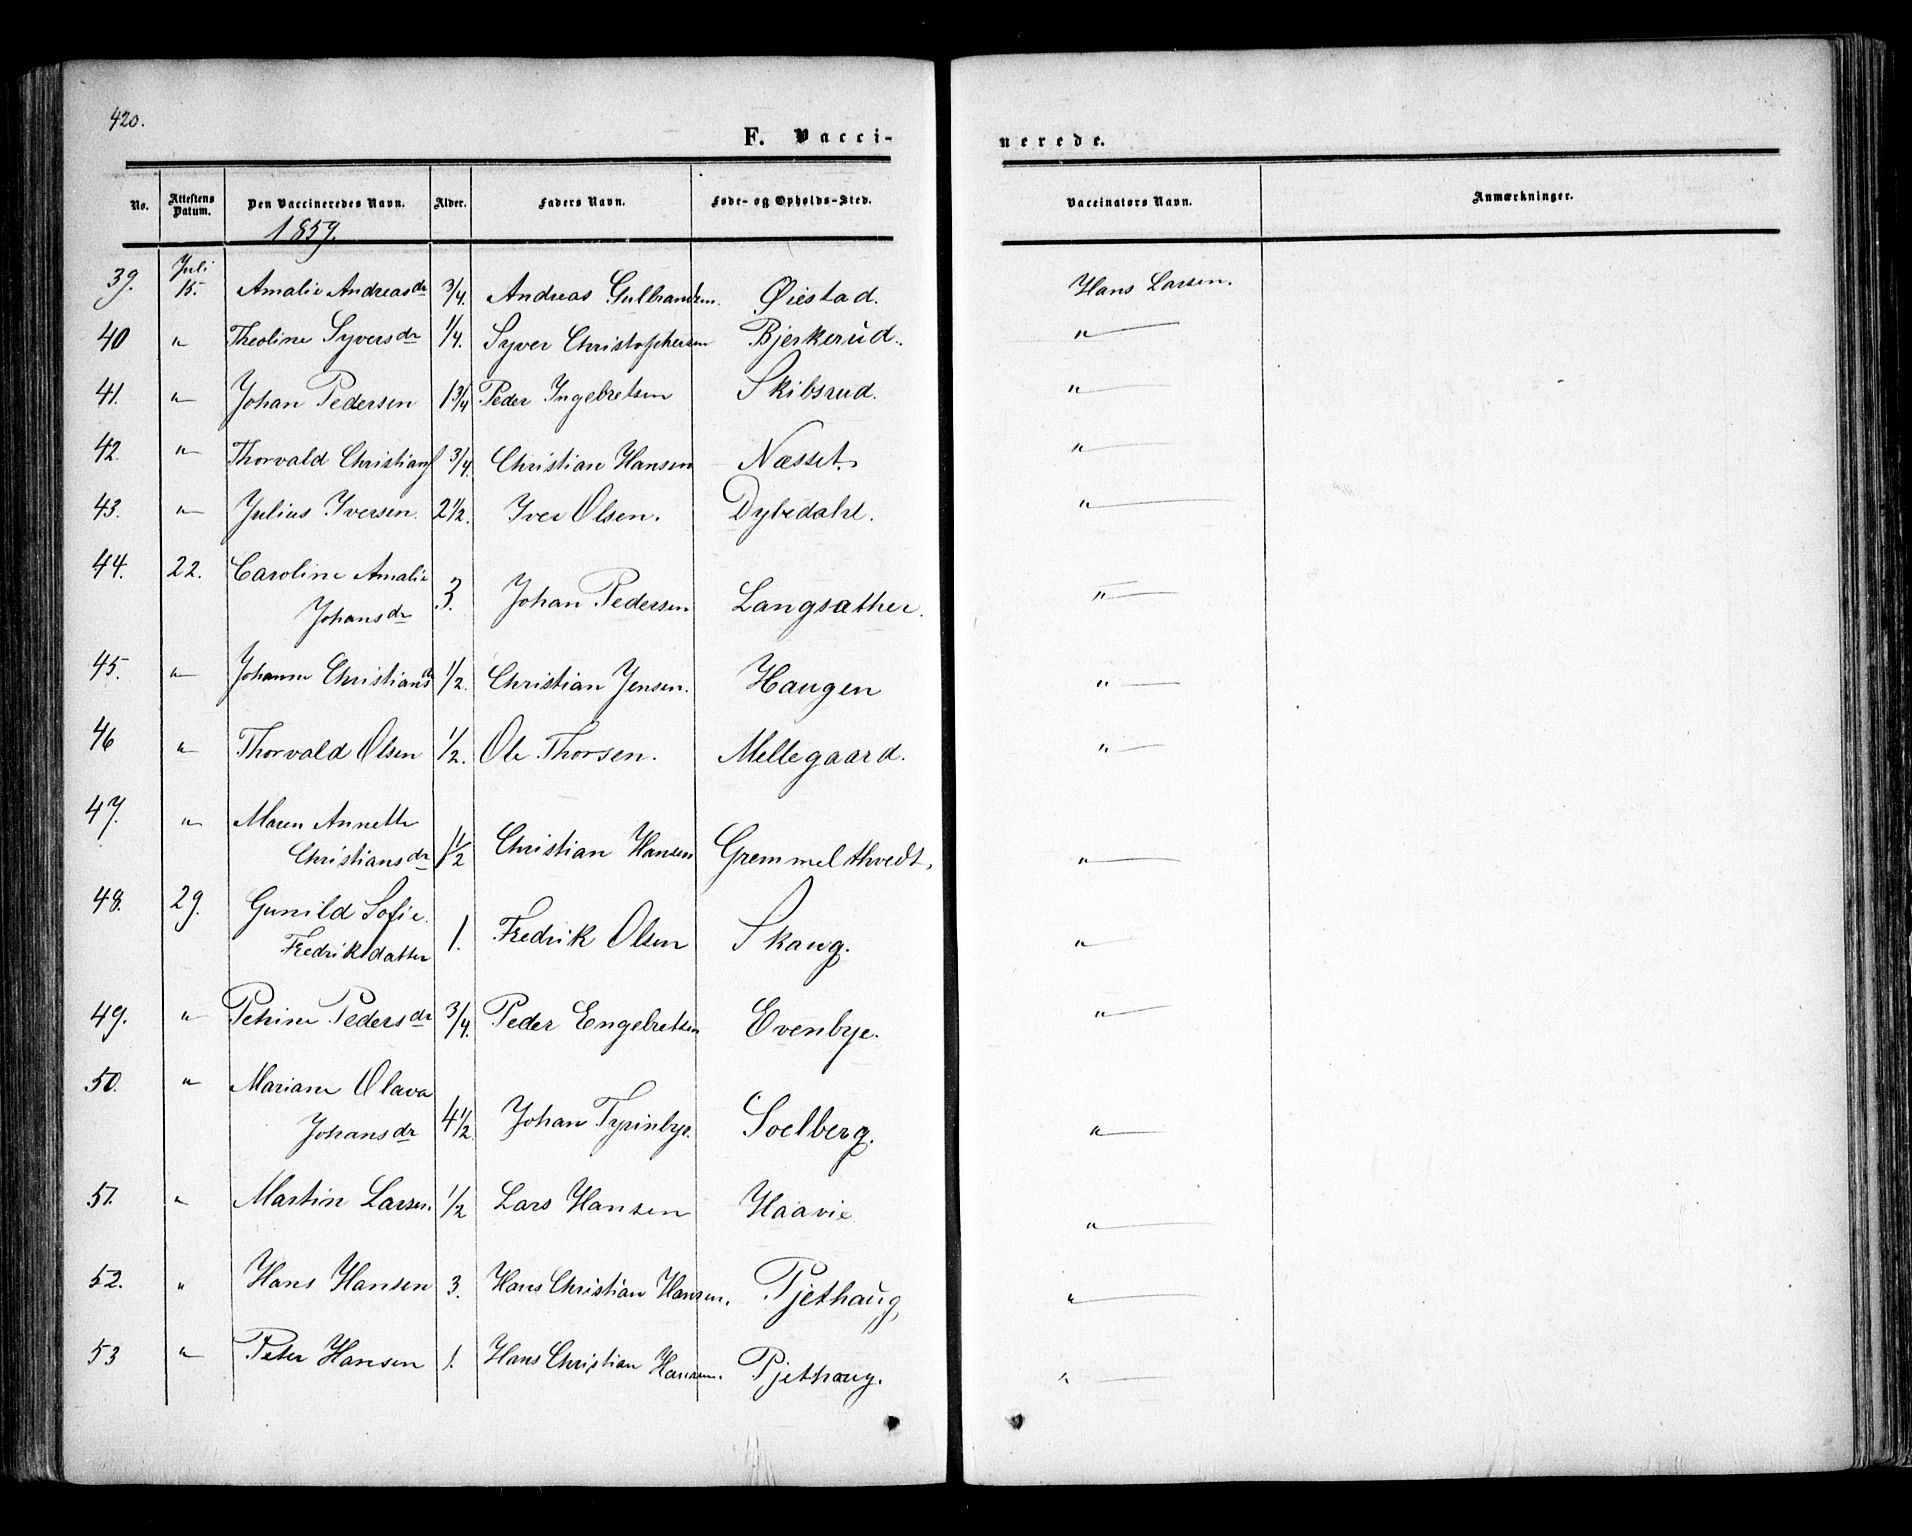 420.
F. Vacci-
nerede.
No. Attestens Datum. Den Vaccineredes Navn. Alder. Faders Navn. Føde- og Opholds-Sted. Vaccinators Navn. Anmærkninger.
1859.
39. Juli 15. Amalie Andreasdr 3/4. Andreas Gulbrandsen. Øiestad. Hans Larsen.
40 " Theoline Syversdr 1/4. Syver Christophersen Bjerkerud. "
41. " Johan Pedersen 1 3/4 Peder Ingebretsen Skibsrud. "
42. " Thorvald Christians 3/4. Christian Hansen Næsset. "
43. " Julius Iversen. 2 1/2. Iver Olsen. Dybedahl. "
44. 22. Caroline Amalie
Johansdr 3. Johan Pedersen Langsæther. "
45. " Johanne Christiansdr 1/2. Christian Jensen. Haugen "
46 " Thorvald Olsen 1/2. Ole Thorsen. Mellegaard. "
47. " Maren Annette
Christiansdr 1 1/2 Christian Hansen Gremmelthvedt. "
48. 29. Gunild Sofie.
Fredriksdatter 1. Fredrik Olsen Skaug. "
49. " Petrine Pedersdr 3/4. Peder Engebretsen Evenbye. "
50. " Mariane Olava
Johansdr 4 1/2. Johan Tyrinbye. Soelberg. "
51. " Martin Larsen. 1/2 Lars Hansen Haavie "
52. " Hans Hansen 3. Hans Christian Hansen. Pjethaug, "
53 " Peter Hansen 1. Hans Christian Hansen. Pjethaug. "